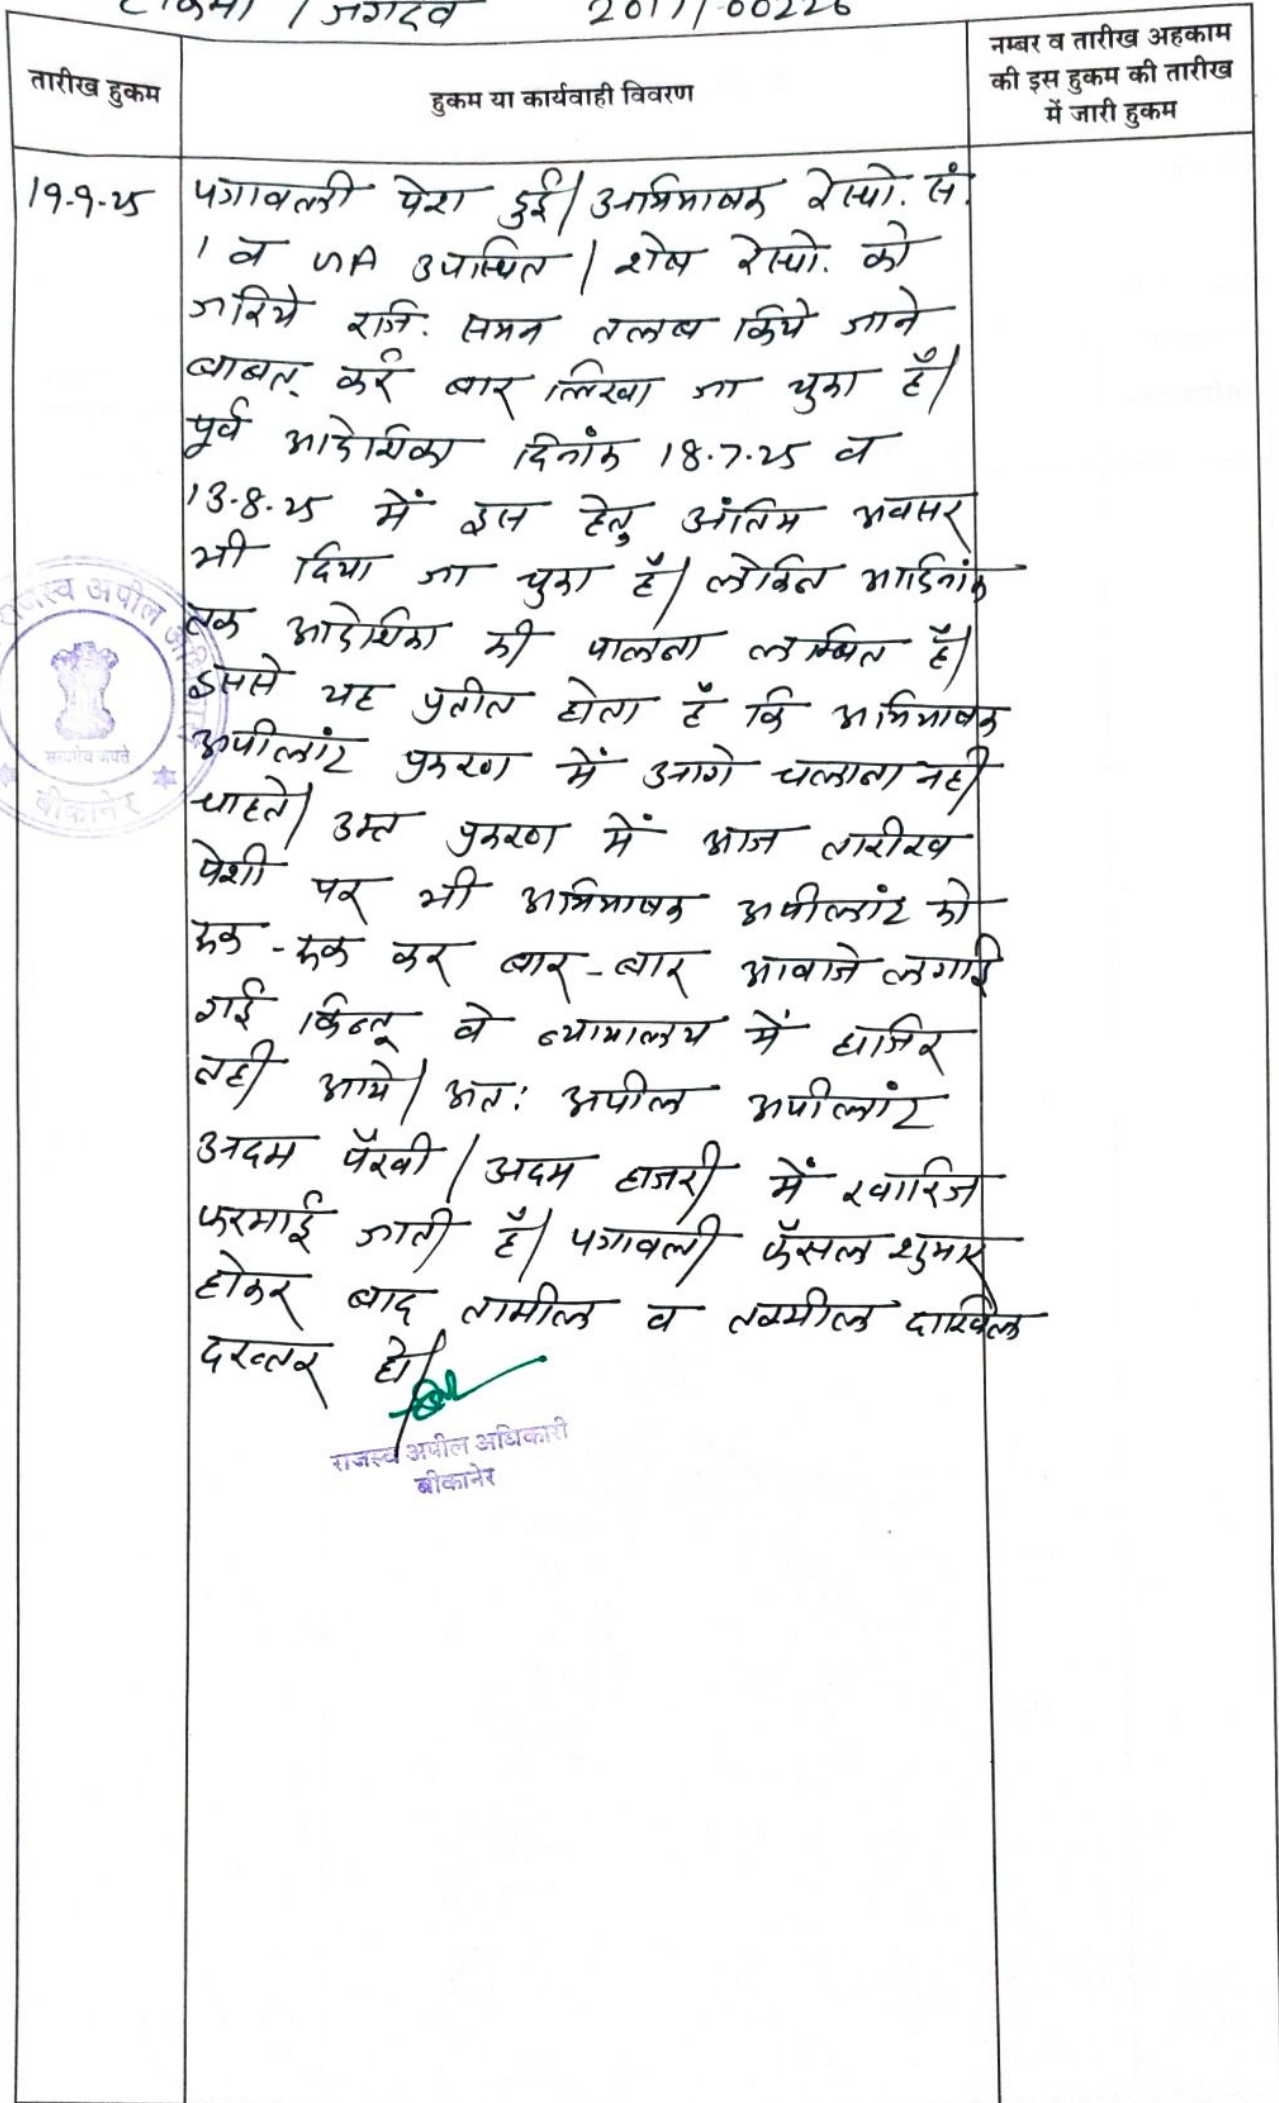 / जगदेव 2017/00226
तारीख हुकम
हुकम या कार्यवाही विवरण
नम्बर व तारीख अहकाम
की इस हुकम की तारीख
में जारी हुकम
19-9-25
पत्रावली पेश हुई। अभिभाषक रेस्पो. सं.
1 व GA उपस्थित। शेष रेस्पो. को
जरिये रजि. समन तलब किये जाने
बाबत् कई बार लिखा जा चुका है।
पूर्व आदेशिका दिनांक 18.7.25 व
13-8-25 में इस हेतु अंतिम अवसर
भी दिया जा चुका है। लेकिन आदिनांक
तक आदेशिका की पालना लम्बित है।
इससे यह प्रतीत होता है कि अभिभाषक
अपीलांट प्रकरण में आगे चलाना नही
चाहते। उक्त प्रकरण में आज तारीख
पेशी पर भी अभिभाषक अपीलांट को
रुक-रुक कर बार-बार आवाजे लगाई
गई किन्तू वे न्यायालय में हाजिर
नही आये। अत: अपील अपीलांट
अदम पैरवी / अदम हाजरी में खारिज
फरमाई जाती है। पत्रावली फैसल शुमार
होकर बाद तामील व तकमील दाखिल
दफ्तर हो।
राजस्व अपील अधिकारी
बीकानेर
राजस्व अपील
सत्यमेव जयते
बीकानेर